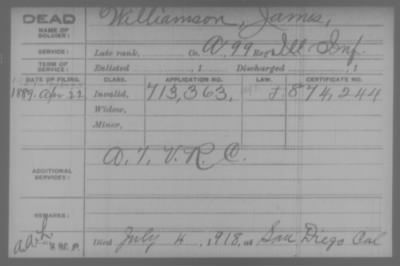 DEAD
NAME OF SOLDIER: Williamson, James,
SERVICE: Late rank, Co. A, 99 Reg't Ill. Inf.
TERM OF SERVICE: Enlisted , 1 Discharged , 1
DATE OF FILING. CLASS. APPLICATION NO. LAW. CERTIFICATE NO.
1889. Apr 22 Invalid, 713,363, J 874,244
Widow,
Minor,
ADDITIONAL SERVICES: D. 1, V. R. C.
REMARKS:
Died July 4, 1918, at San Diego Cal